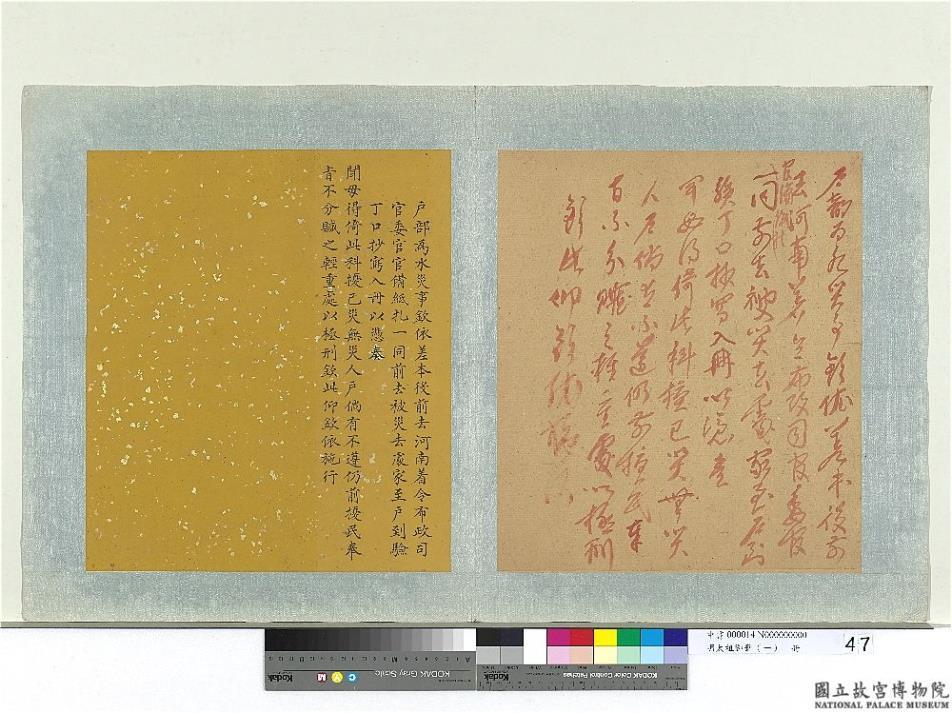 户部為水災事欽依差本後前
去河南着令布政司官委官
官備紙札
一同前去被災去處家至户到
驗丁口抄寫入冊以憑奏
聞毋得倚此科擾已災無災
人户倘有不遵仍前擾民奉
旨不分贓之輕重處以極刑
欽此仰欽依施行
户部為水災事欽依差本後前去河南着令布政司
官委官官備紙札一同前去被災去處家至户到驗
丁口抄寫入冊以憑奏
聞毋得倚此科擾已災無災人户倘有不遵仍前擾民奉
旨不分贓之輕重處以極刑欽此仰欽依施行
KODAK Gray Scale
Kodak
C
Y
M
KODAK Color Control Patches
Kodak
中書000014N000000000
明太祖御筆(一) 冊
47
國立故宮博物院
NATIONAL PALACE MUSEUM